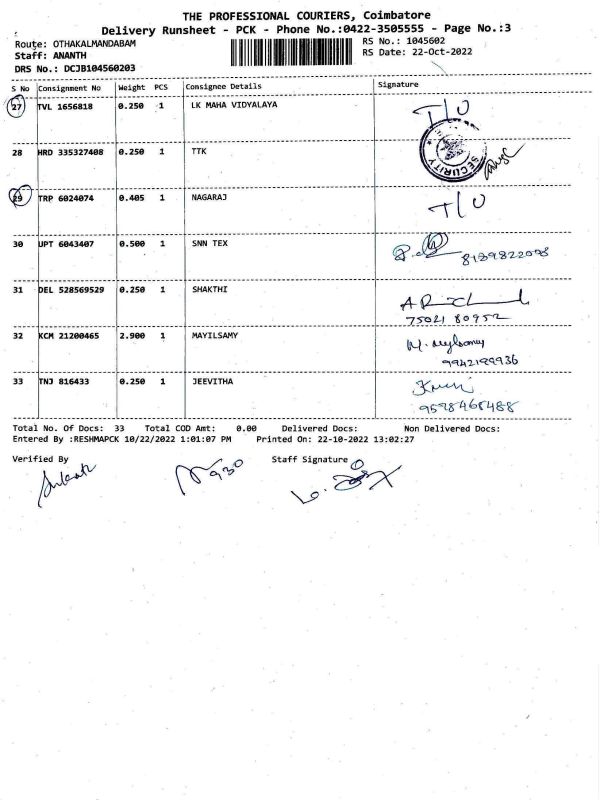 THE PROFESSIONAL COURIERS, Coimbatore
Delivery Runsheet - PCK - Phone No.:0422-3505555 - Page No.:3
Route: OTHAKALMANDABAM RS No.: 1045602
Staff: ANANTH RS Date: 22-Oct-2022
DRS No.: DCJB104560203
S No Consignment No Weight PCS Consignee Details Signature
27 TVL 1656818 0.250 1 LK MAHA VIDYALAYA T/O
SECURITY
28 HRD 335327408 0.250 1 TTK
29 TRP 6024074 0.405 1 NAGARAJ T/O
30 UPT 6043407 0.500 1 SNN TEX
31 DEL 528569529 0.250 1 SHAKTHI
75021 80952
32 KCM 21200465 2.900 1 MAYILSAMY
9942199936
33 TNJ 816433 0.250 1 JEEVITHA
9578468488
Total No. Of Docs: 33 Total COD Amt: 0.00 Delivered Docs: Non Delivered Docs:
Entered By :RESHMAPCK 10/22/2022 1:01:07 PM Printed On: 22-10-2022 13:02:27
Verified By Staff Signature